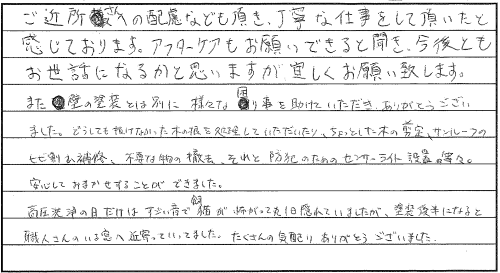 ご近所さんへの配慮なども頂き、丁寧な仕事をして頂いたと
感じております。アフターケアもお願いできると聞き、今後とも
お世話になるかと思いますが宜しくお願い致します。
また壁の塗装とは別に様々な困り事を助けていただき、ありがとうござい
ました。どうしても抜けなかった木の根を処理していただいたり、ちょっとした木の剪定、サンルーフの
ヒビ割れ補修、不要な物の撤去、それと防犯のためのセンサーライト設置等々。
安心しておまかせすることができました。
高圧洗浄の日だけはすごい音で飼猫が怖がって丸1日隠れていましたが、塗装後半になると
職人さんのいる窓へ近寄っていってました。たくさんの気配りありがとうございました。